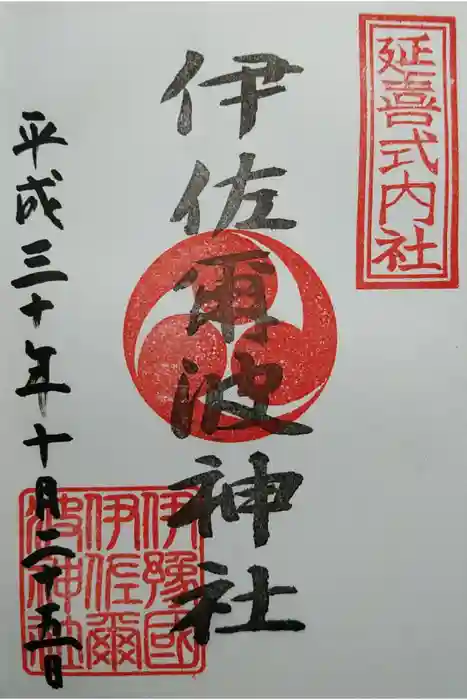 延喜式内社
伊佐爾波神社
平成三十年十月二十五日
伊豫國
伊佐爾
波神社